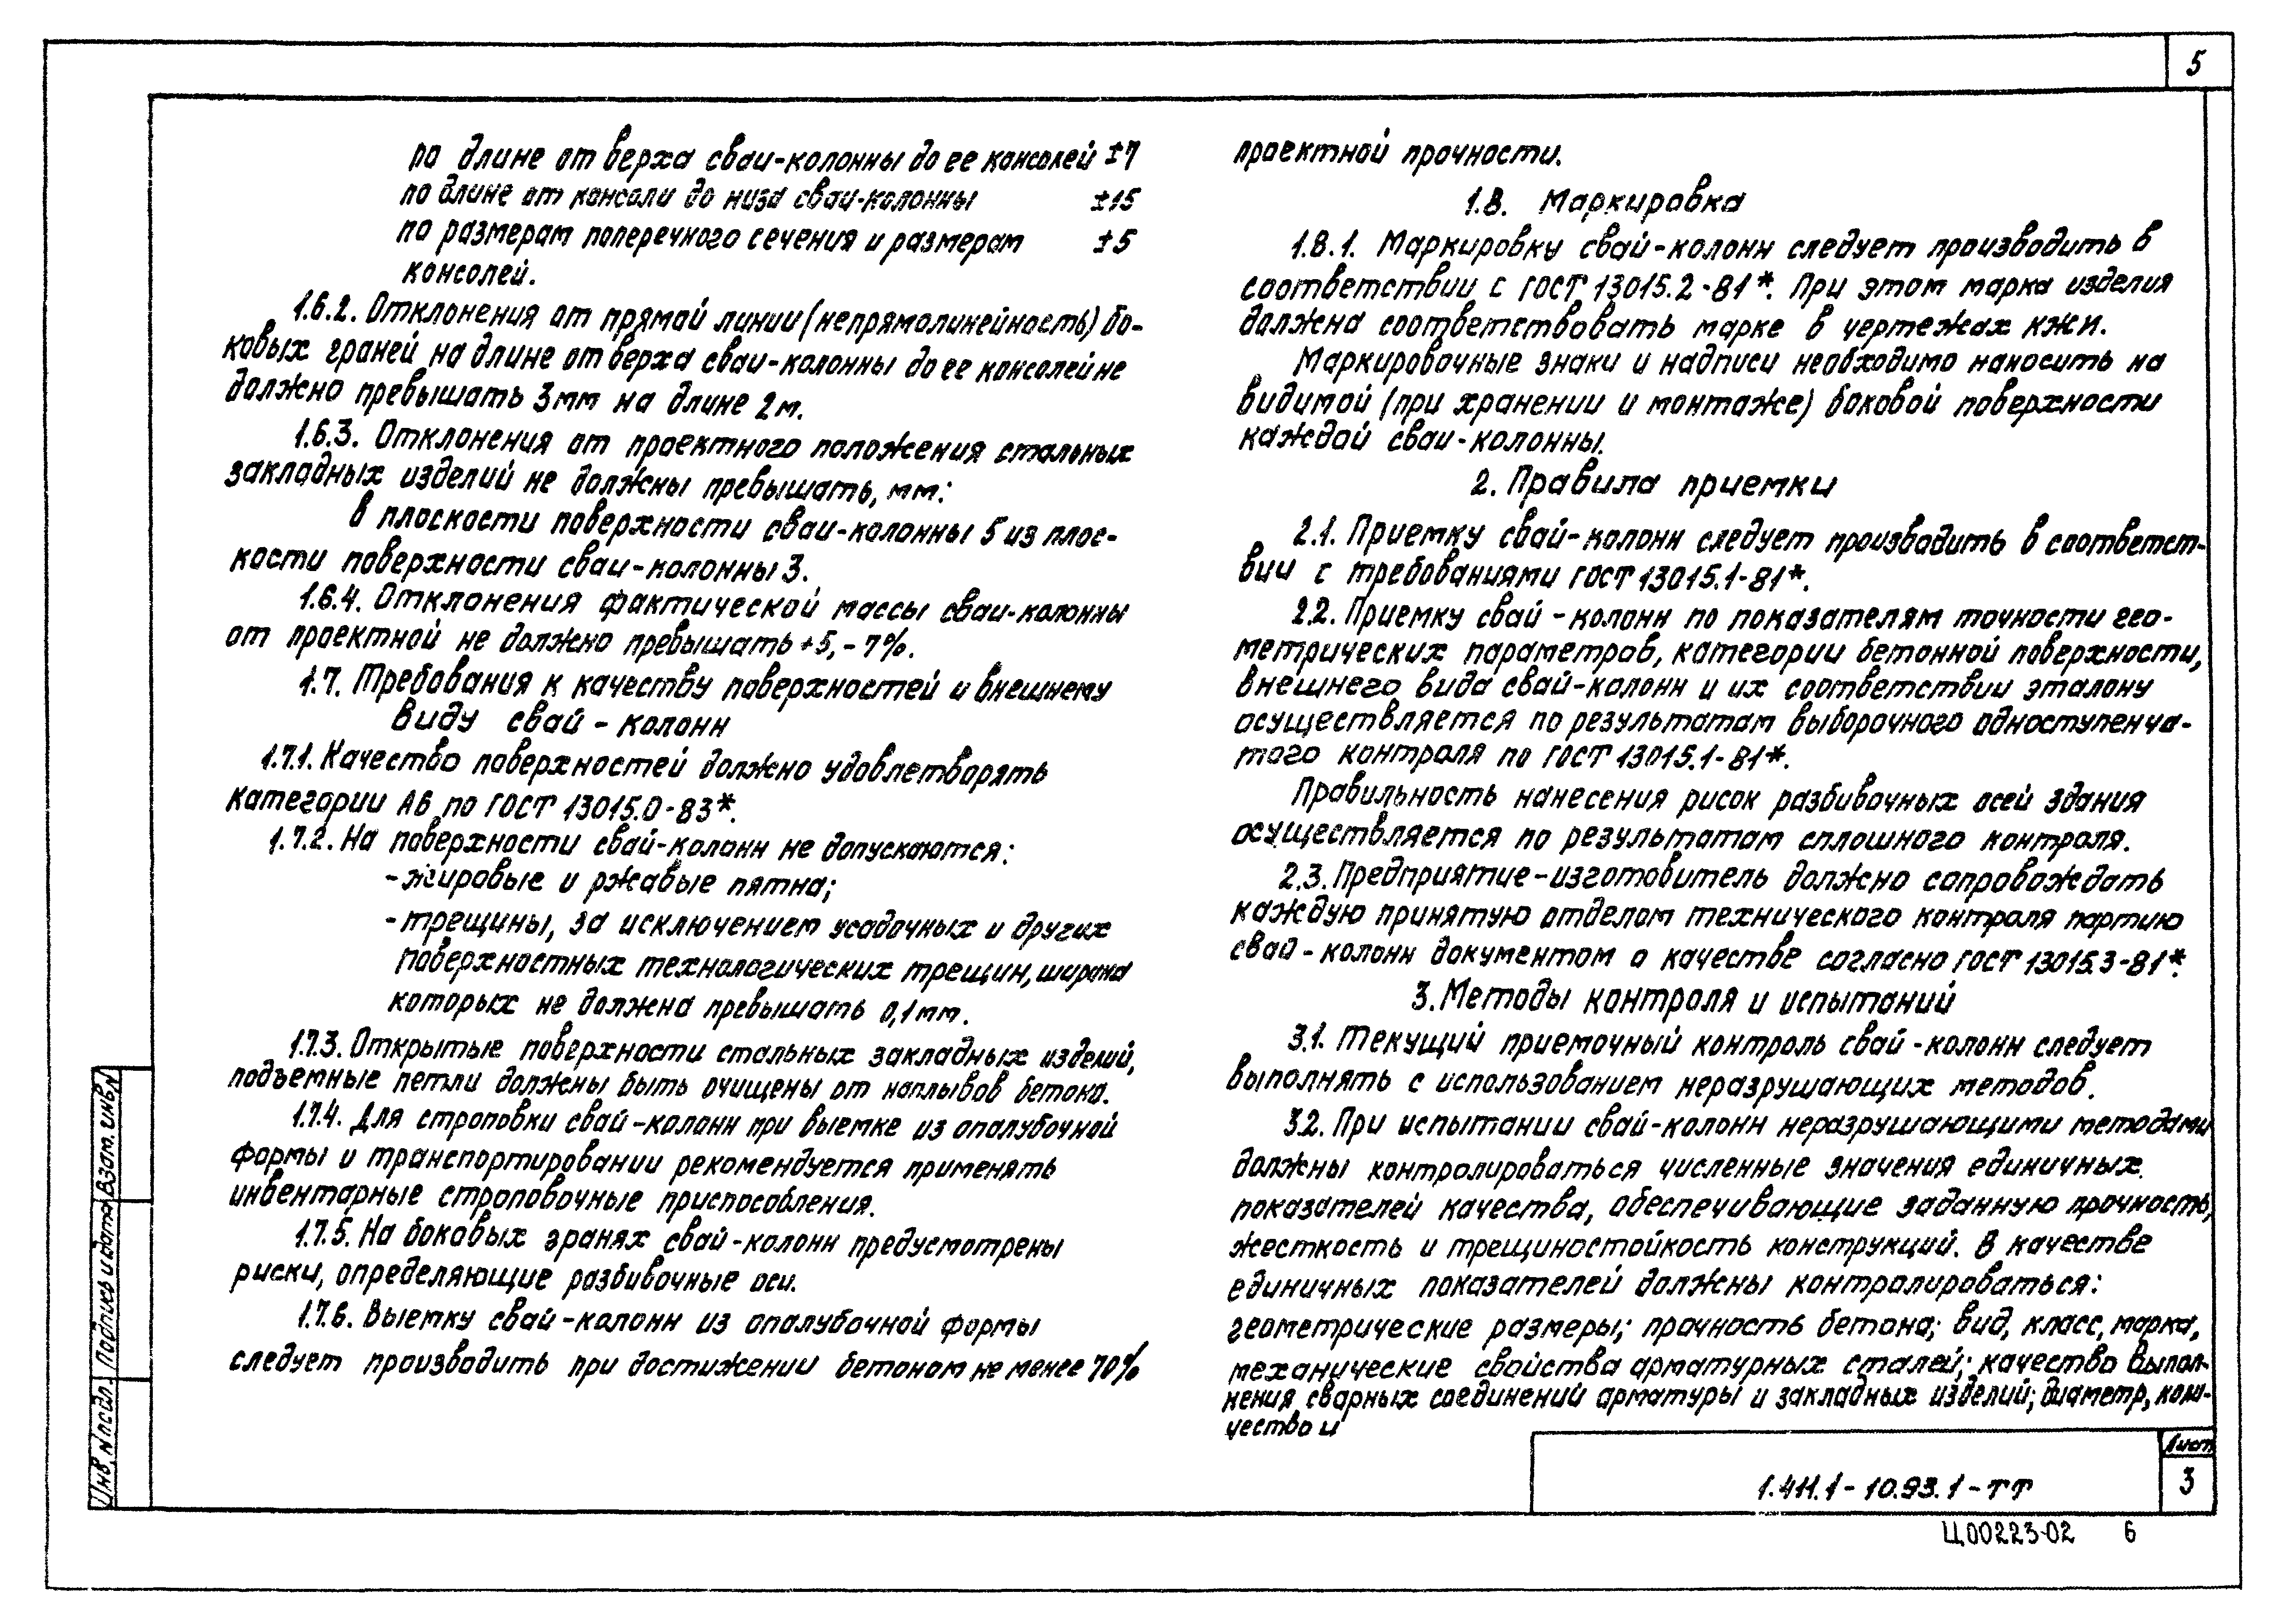 5
по длине от верха сваи-колонны до ее консолей ±7
по длине от консоли до низа сваи-колонны ±15
по размерам поперечного сечения и размерам ±5
консолей.
1.6.2. Отклонения от прямой линии (непрямолинейность) бо-
ковых граней на длине от верха сваи-колонны до ее консолей не
должно превышать 3мм на длине 2м.
1.6.3. Отклонения от проектного положения стальных
закладных изделий не должны превышать, мм:
в плоскости поверхности сваи-колонны 5 из плос-
кости поверхности сваи-колонны 3.
1.6.4. Отклонения фактической массы сваи-колонны
от проектной не должно превышать +5, -7%.
1.7. Требования к качеству поверхностей и внешнему
виду свай-колонн
1.7.1. Качество поверхностей должно удовлетворять
категории А6 по ГОСТ 13015.0-83*.
1.7.2. На поверхности свай-колонн не допускаются:
-жировые и ржавые пятна;
-трещины, за исключением усадочных и других
поверхностных технологических трещин, ширина
которых не должна превышать 0,1мм.
1.7.3. Открытые поверхности стальных закладных изделий,
подъемные петли должны быть очищены от наплывов бетона.
1.7.4. Для строповки свай-колонн при выемке из опалубочной
формы и транспортировании рекомендуется применять
инвентарные строповочные приспособления.
1.7.5. На боковых гранях свай-колонн предусмотрены
риски, определяющие разбивочные оси.
1.7.6. Выемку свай-колонн из опалубочной формы
следует производить при достижении бетоном не менее 70%
проектной прочности.
1.8. Маркировка
1.8.1. Маркировку свай-колонн следует производить в
соответствии с ГОСТ 13015.2-81*. При этом марка изделия
должна соответствовать марке в чертежах КЖИ.
Маркировочные знаки и надписи необходимо наносить на
видимой (при хранении и монтаже) боковой поверхности
каждой сваи-колонны.
2. Правила приемки
2.1. Приемку свай-колонн следует производить в соответст-
вии с требованиями ГОСТ 13015.1-81*.
2.2. Приемку свай-колонн по показателям точности гео-
метрических параметров, категории бетонной поверхности,
внешнего вида свай-колонн и их соответствии эталону
осуществляется по результатам выборочного одноступенча-
того контроля по ГОСТ 13015.1-81*.
Правильность нанесения рисок разбивочных осей здания
осуществляется по результатам сплошного контроля.
2.3. Предприятие-изготовитель должно сопровождать
каждую принятую отделом технического контроля партию
свай-колонн документом о качестве согласно ГОСТ 13015.3-81*.
3. Методы контроля и испытаний
3.1. Текущий приемочный контроль свай-колонн следует
выполнять с использованием неразрушающих методов.
3.2. При испытании свай-колонн неразрушающими методами
должны контролироваться численные значения единичных
показателей качества, обеспечивающие заданную прочность,
жесткость и трещиностойкость конструкций. В качестве
единичных показателей должны контролироваться:
геометрические размеры; прочность бетона; вид, класс, марка,
механические свойства арматурных сталей; качество выпол-
нения сварных соединений арматуры и закладных изделий; диаметр, коли-
чество и
Инв. N подл. Подпись и дата Взам. инв. N
1.411.1-10.93.1-ТТ
Лист
3
Ц00223-02 6